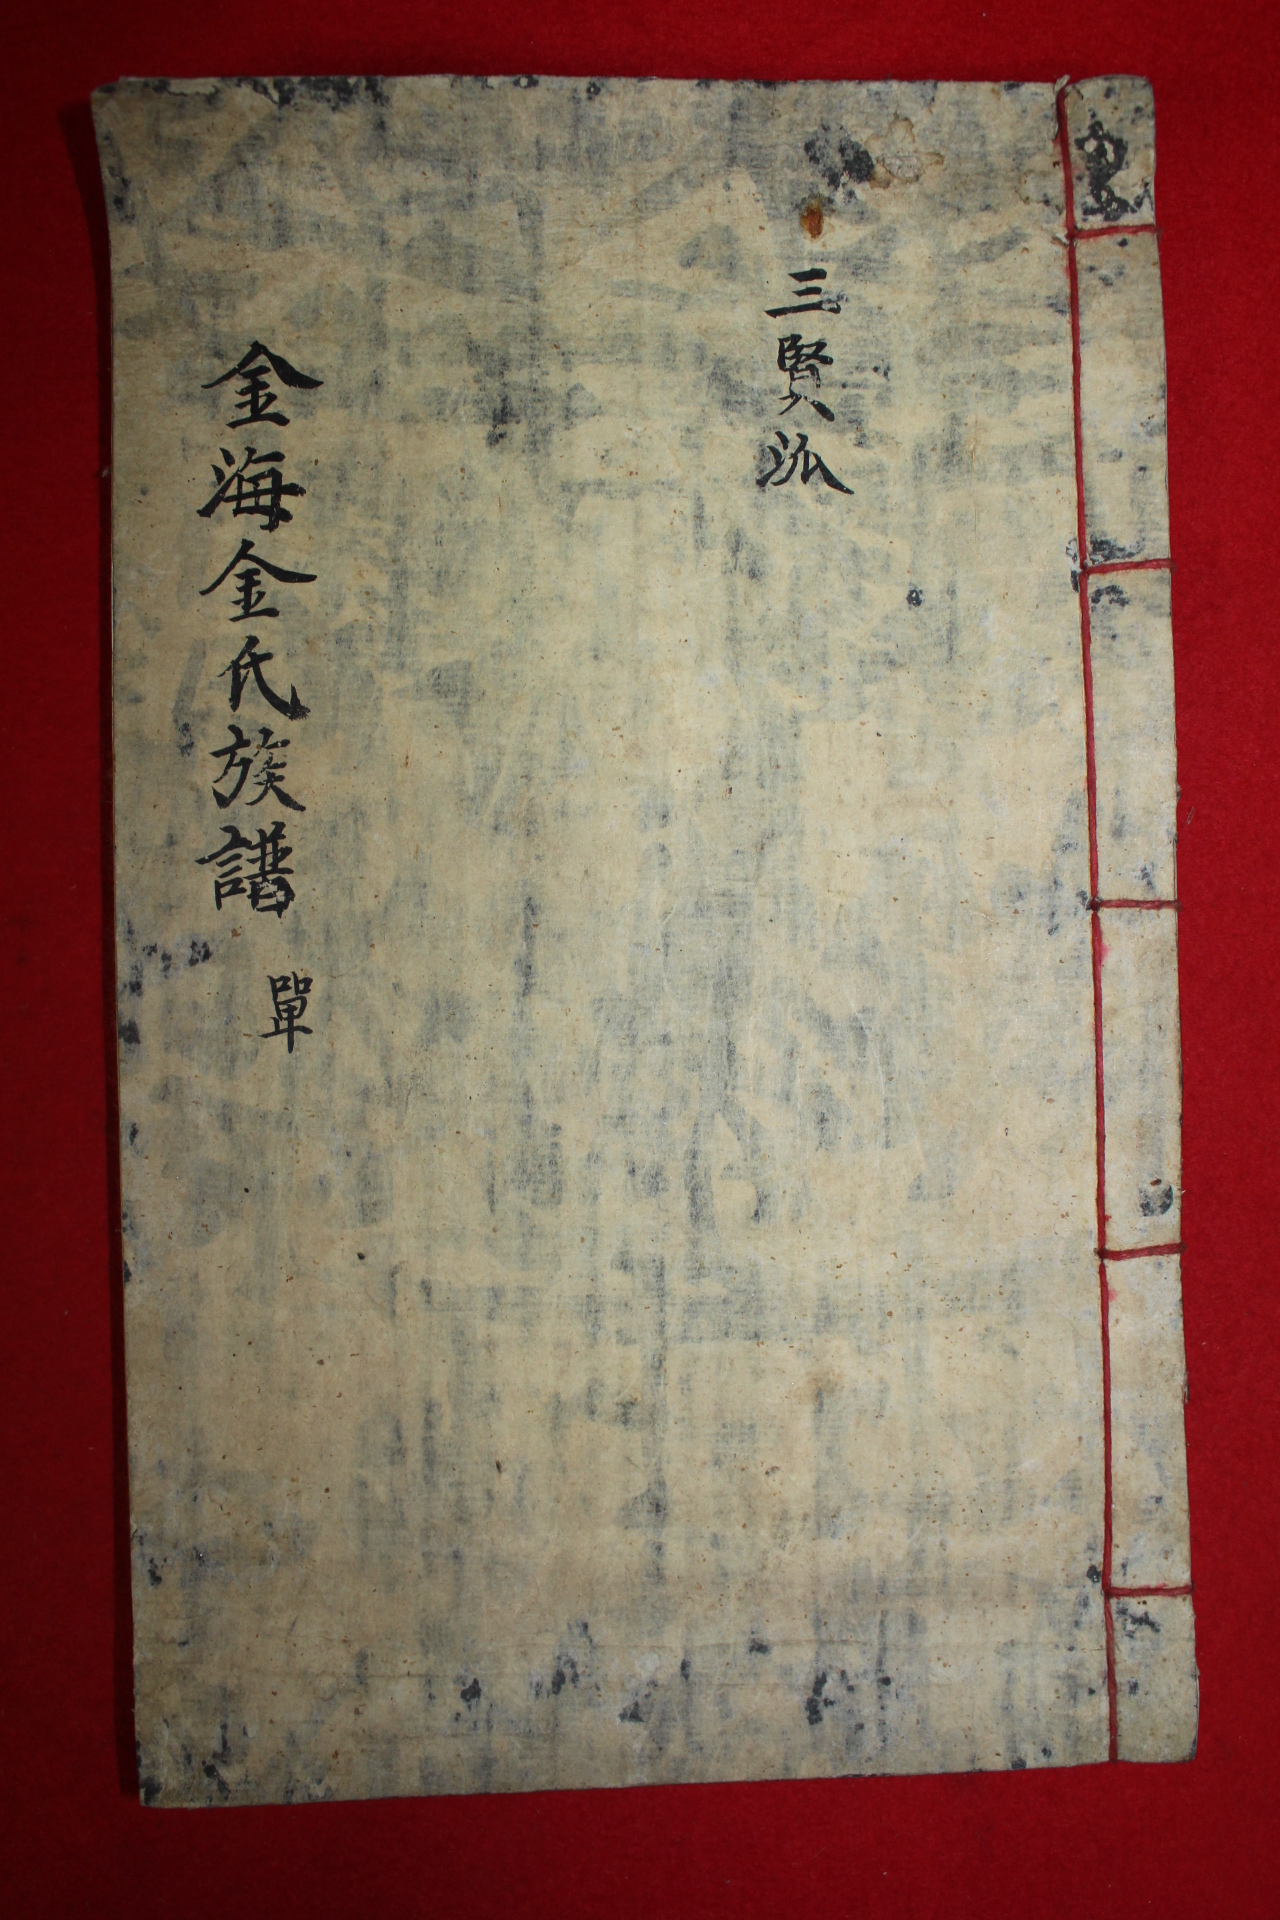 三賢派
金海金氏族譜 單